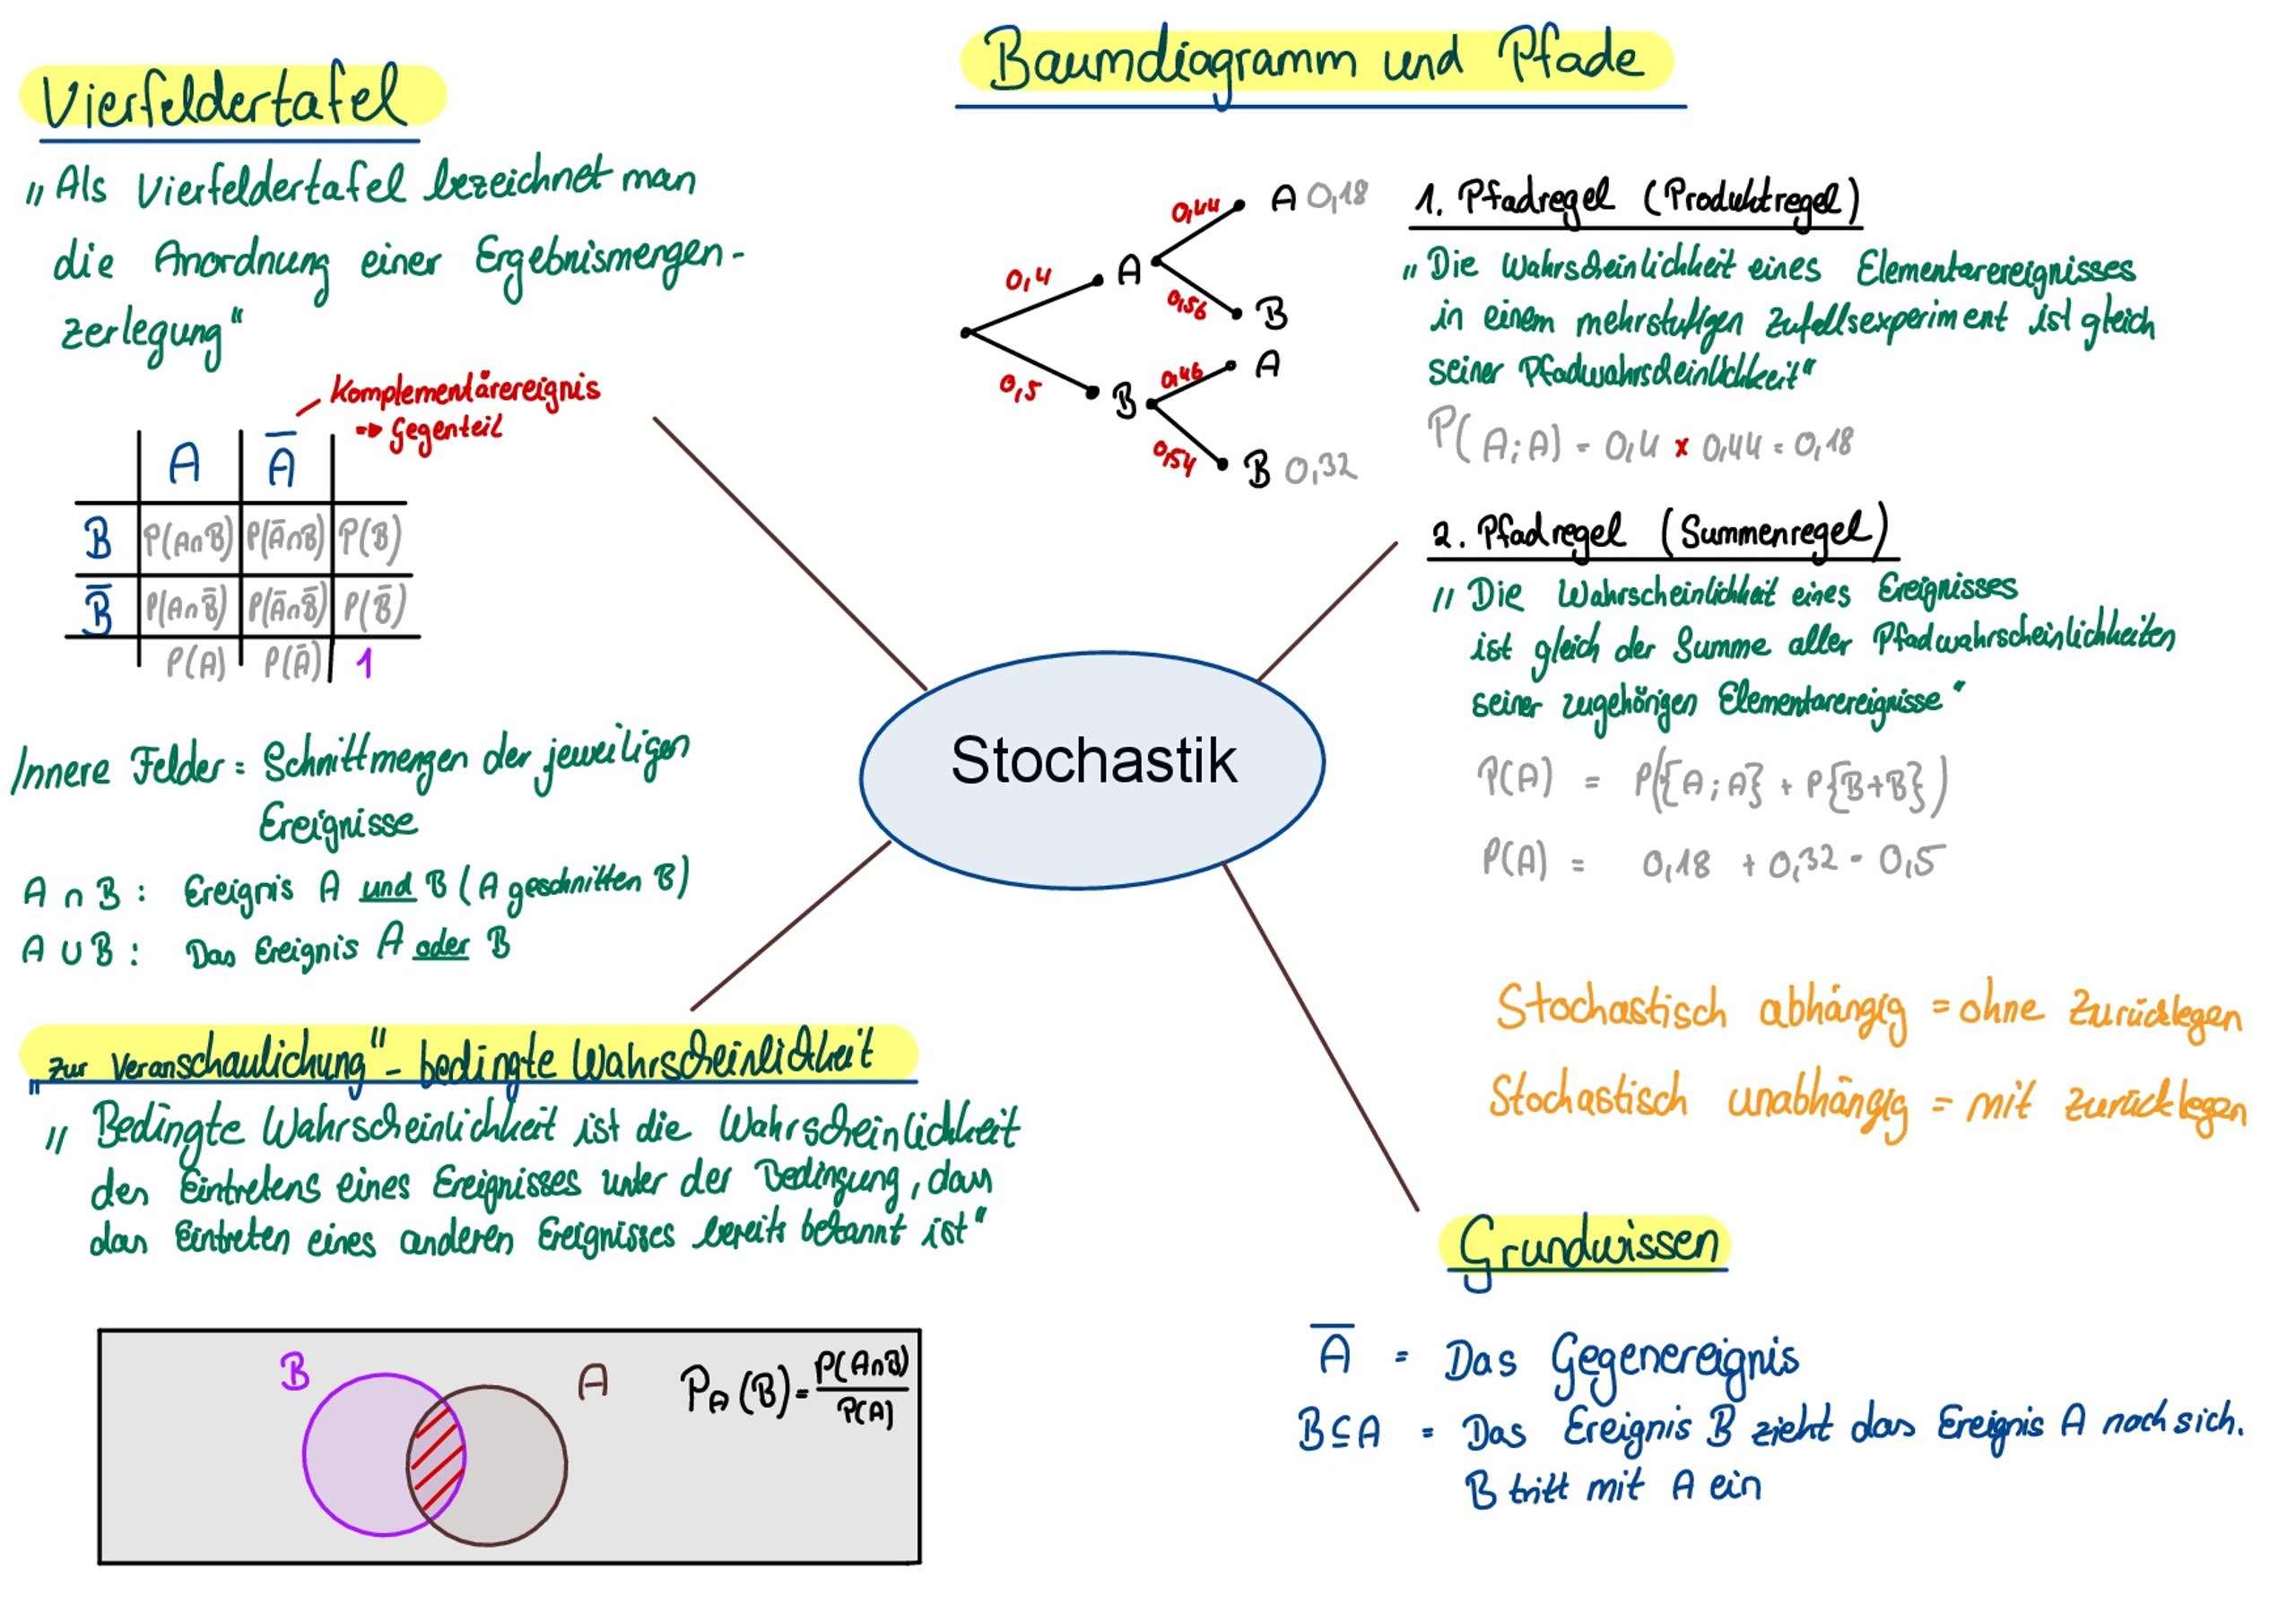 Vierfeldertafel
„Als Vierfeldertafel bezeichnet man
die Anordnung einer Ergebnismengen-
zerlegung“
Komplementärereignis
→ Gegenteil
A Ā
B P(A∩B) P(Ā∩B) P(B)
B̄ P(A∩B̄) P(Ā∩B̄) P(B̄)
P(A) P(Ā) 1
Innere Felder = Schnittmengen der jeweiligen
Ereignisse
A ∩ B : Ereignis A und B (A geschnitten B)
A ∪ B : Das Ereignis A oder B
Baumdiagramm und Pfade
0,44 A 0,18
0,4 A
0,56 B
0,5 B
0,46 A
0,54 B 0,32
1. Pfadregel (Produktregel)
„Die Wahrscheinlichkeit eines Elementarereignisses
in einem mehrstufigen Zufallsexperiment ist gleich
seiner Pfadwahrscheinlichkeit“
P(A;A) = 0,4 x 0,44 = 0,18
2. Pfadregel (Summenregel)
„Die Wahrscheinlichkeit eines Ereignisses
ist gleich der Summe aller Pfadwahrscheinlichkeiten
seiner zugehörigen Elementarereignisse“
P(A) = P({A;A} + P{B+B})
P(A) = 0,18 + 0,32 = 0,5
Stochastik
Stochastisch abhängig = ohne Zurücklegen
Stochastisch unabhängig = mit zurücklegen
„zur Veranschaulichung“ - bedingte Wahrscheinlichkeit
„Bedingte Wahrscheinlichkeit ist die Wahrscheinlichkeit
des Eintretens eines Ereignisses unter der Bedingung, dass
das Eintreten eines anderen Ereignisses bereits bekannt ist“
B A P_A(B) = P(A∩B) / P(A)
Grundwissen
Ā = Das Gegenereignis
B⊆A = Das Ereignis B zieht das Ereignis A nach sich.
B tritt mit A ein